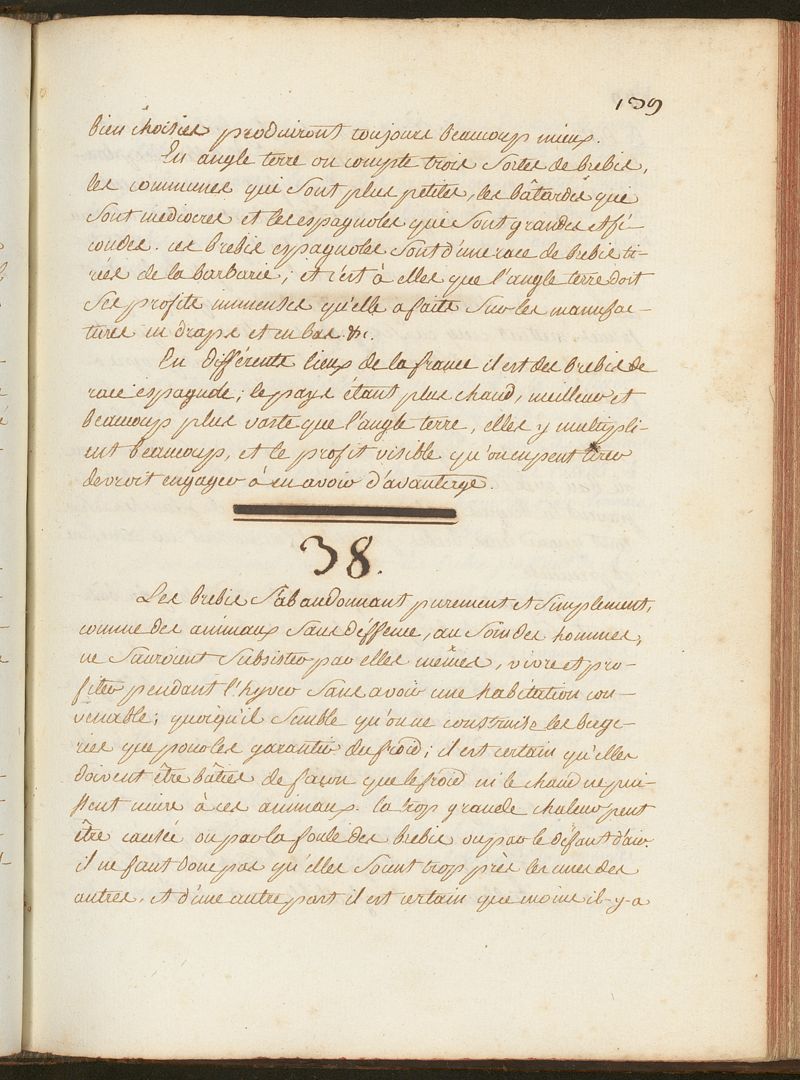 139
bien choisies produiront toujours beaucoup mieux.
En angle terre on compte trois sortes de brebis,
les communes qui sont plus petites, les bâtardes que
sont mediocres et les espagnoles qui sont grandes et fé
condes. ces brebis espagnoles sont d'une race de brebis ti-
rées de la barbarie; et c'est à elles que l'angle terre doit
ses profits immenses qu'elle a faits sur les manufac-
tures en draps et en bas &c.
En différents lieux de la france il est des brebis de
race espagnole; le pays étant plus chaud, meilleur et
beaucoup plus vaste que l'angle terre, elles y multipli-
ent beaucoup, et le profit visible qu'on en peut tirer
devroit engager à en avoir d'avantage.
38.
Les brebis s'abandonnant purement et simplement,
comme des animaux sans déffense, au soin des hommes,
ne sauroient subsister par elles mêmes, vivre et pro-
fiter pendant l'hyver sans avoir une habitation con-
venable; quoiqu'il semble qu'on ne construise les berge-
ries que pour les garantir du froid; il est certain qu'elles
doivent être bâties de façon que le froid ni le chaud ne puis-
sent nuire à ces animaux. la trop grande chaleur peut
être causée ou par la foule des brebis ou par le défaut d'air.
il ne faut donc pas qu'elles soient trop près les unes des
autres, et d'une autre part il est certain que moins il-y-a